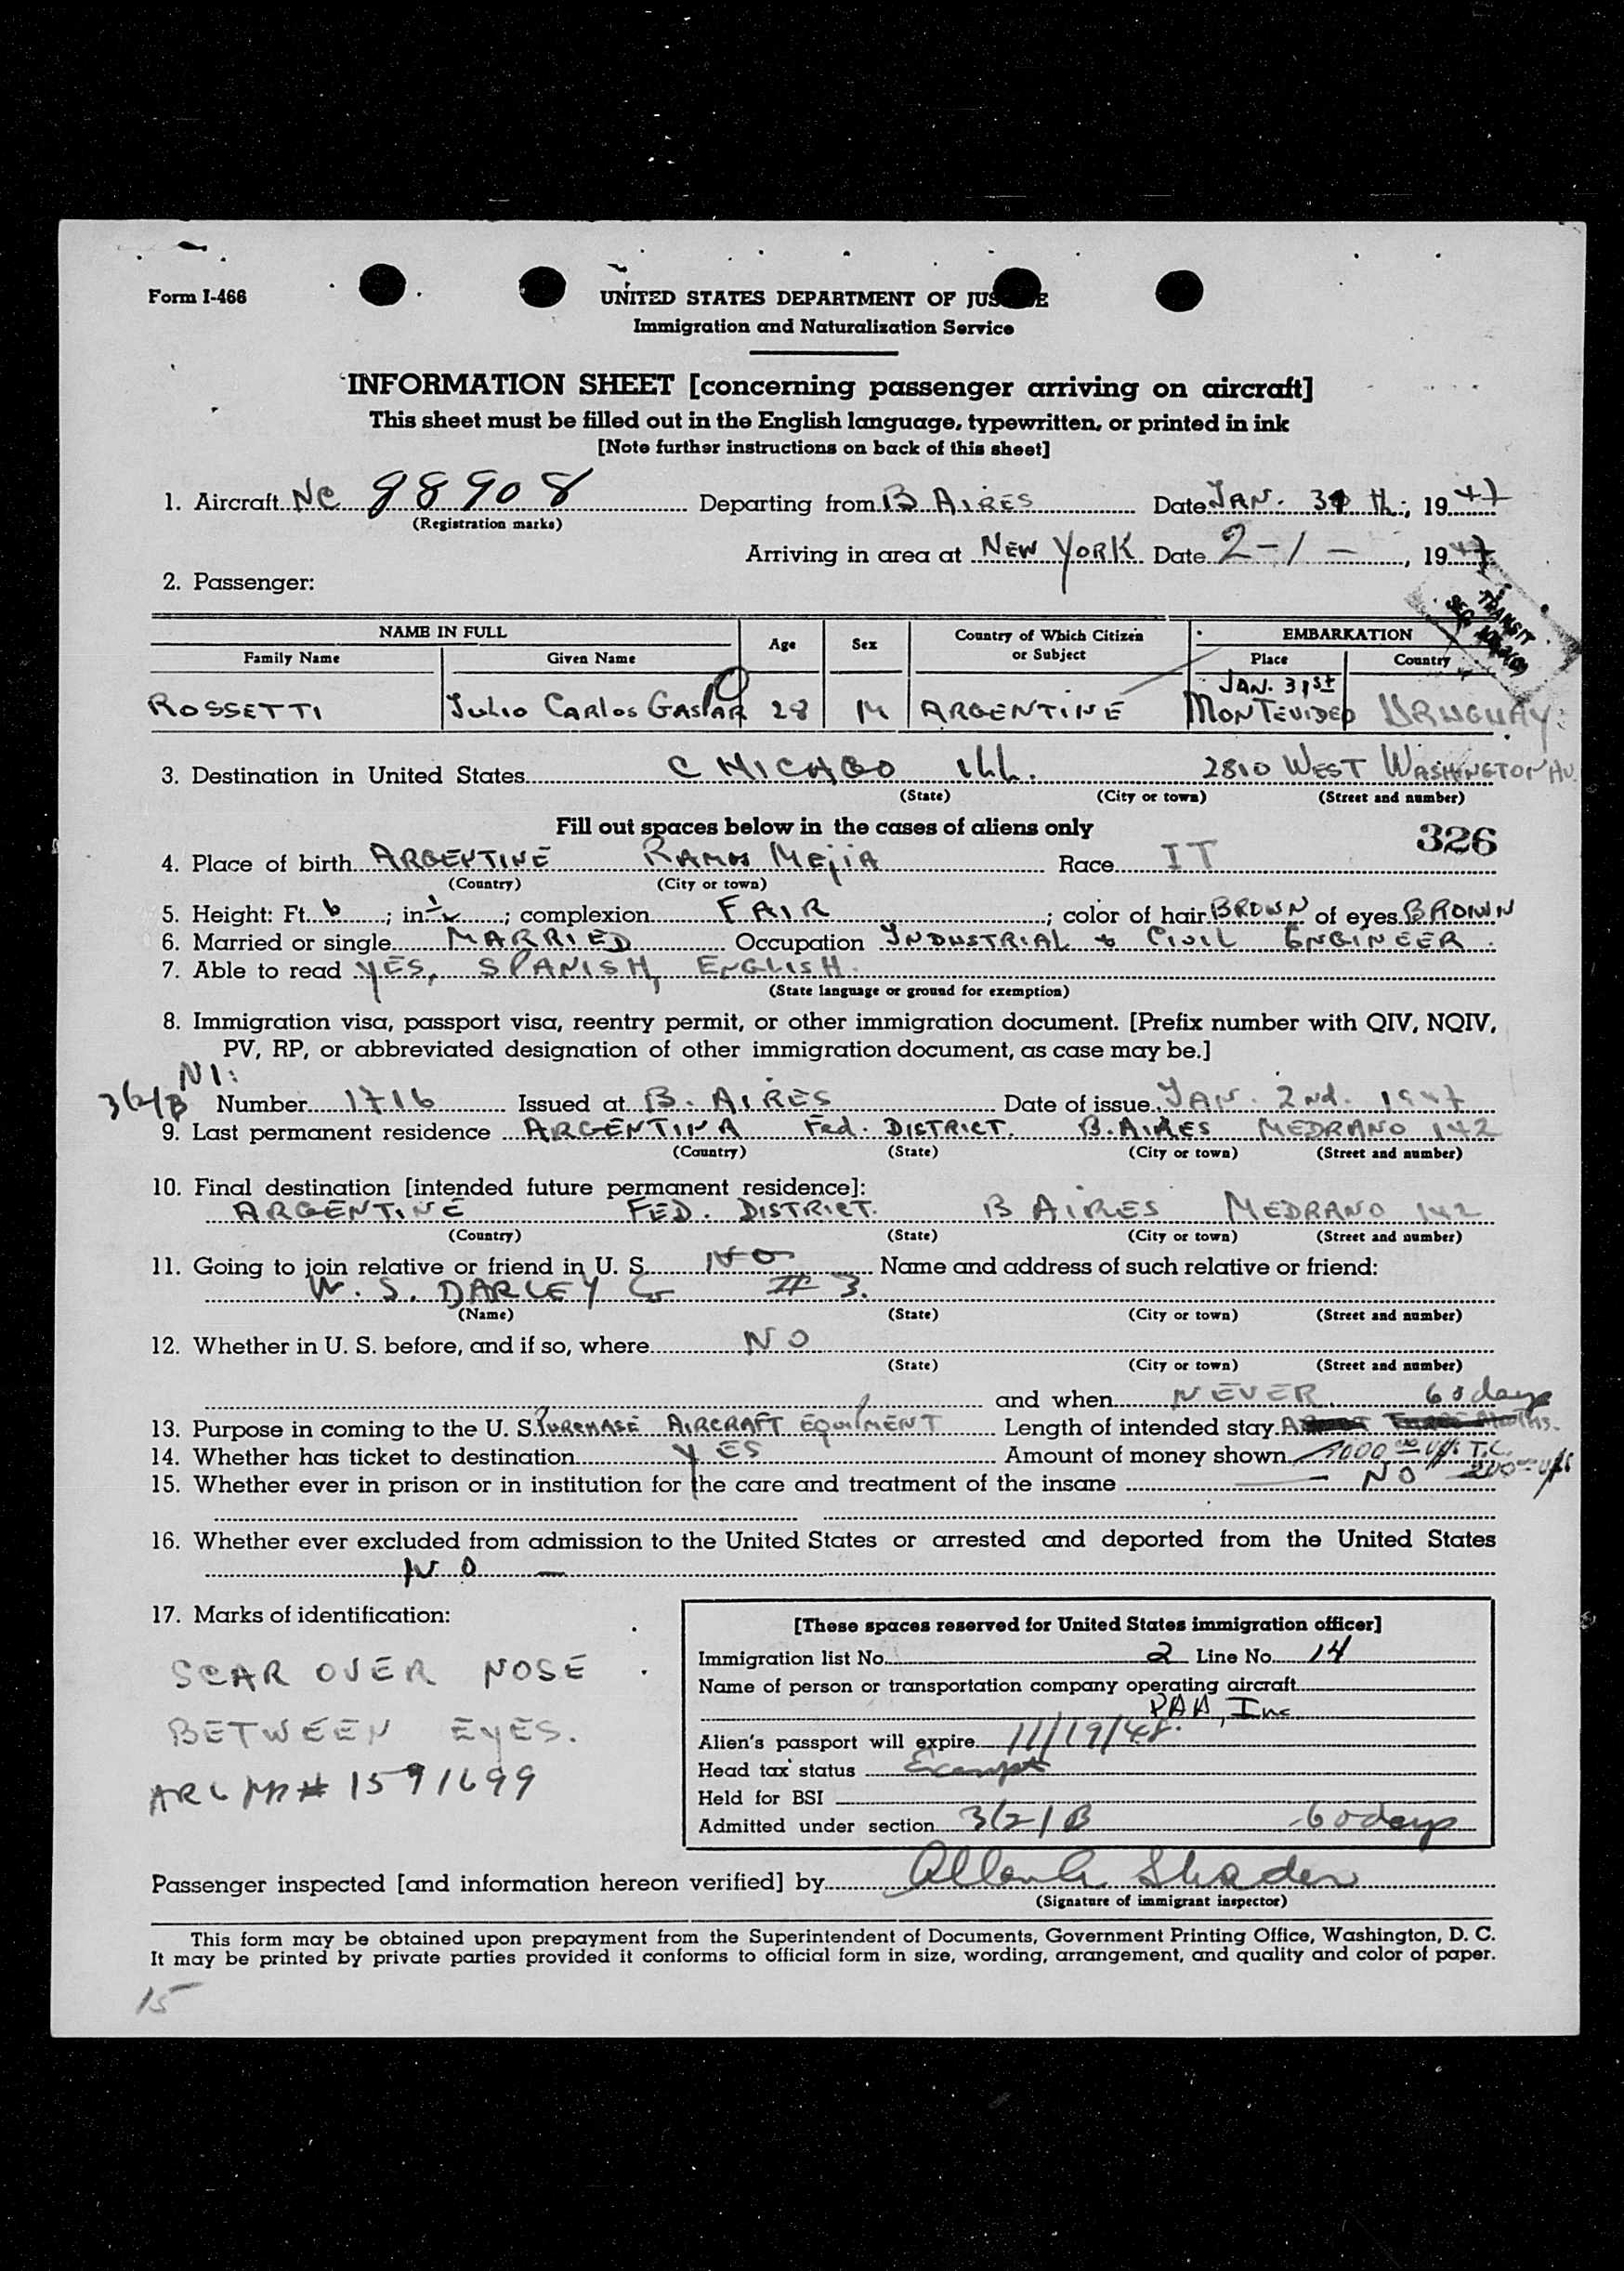 Form I-466
UNITED STATES DEPARTMENT OF JUS E
Immigration and Naturalization Service
INFORMATION SHEET [concerning passenger arriving on aircraft]
This sheet must be filled out in the English language, typewritten, or printed in ink
[Note further instructions on back of this sheet]
1. Aircraft NC 88908 Departing from B AIRES Date JAN. 31 th; 1947
(Registration marks)
Arriving in area at NEW YORK Date 2-1-, 1947
2. Passenger:
TRANSIT
NAME IN FULL Age Sex Country of Which Citizen or Subject EMBARKATION
Family Name Given Name Place Country
JAN. 31st
ROSSETTI Julio Carlos GASPAR 28 M ARGENTINE MONTEVIDEO URUGUAY
3. Destination in United States CHICAGO ILL. 2810 WEST WASHINGTON AV.
(State) (City or town) (Street and number)
Fill out spaces below in the cases of aliens only
326
4. Place of birth ARGENTINE RAMOS MEJIA Race IT
(Country) (City or town)
5. Height: Ft. 6; in ½; complexion FAIR; color of hair BROWN of eyes BROWN
6. Married or single MARRIED Occupation INDUSTRIAL & CIVIL ENGINEER
7. Able to read YES, SPANISH, ENGLISH.
(State language or ground for exemption)
8. Immigration visa, passport visa, reentry permit, or other immigration document. [Prefix number with QIV, NQIV,
PV, RP, or abbreviated designation of other immigration document, as case may be.]
NI:
3(2)B Number 1716 Issued at B. AIRES Date of issue JAN. 2nd. 1947
9. Last permanent residence ARGENTINA Fed. DISTRICT. B.AIRES MEDRANO 142
(Country) (State) (City or town) (Street and number)
10. Final destination [intended future permanent residence]:
ARGENTINE FED. DISTRICT. B AIRES MEDRANO 142
(Country) (State) (City or town) (Street and number)
11. Going to join relative or friend in U. S. NO Name and address of such relative or friend:
W. S. DARLEY Co # 3.
(Name) (State) (City or town) (Street and number)
12. Whether in U. S. before, and if so, where NO
(State) (City or town) (Street and number)
and when NEVER. 60 days
13. Purpose in coming to the U. S. PURCHASE AIRCRAFT EQUIPMENT Length of intended stay
14. Whether has ticket to destination YES Amount of money shown 1000 00 U/S T.C.
15. Whether ever in prison or in institution for the care and treatment of the insane NO 200 00 U/S
16. Whether ever excluded from admission to the United States or arrested and deported from the United States
NO —
17. Marks of identification:
SCAR OVER NOSE
BETWEEN EYES.
ARG PP# 1591699
[These spaces reserved for United States immigration officer]
Immigration list No. 2 Line No. 14
Name of person or transportation company operating aircraft
PAA, Inc
Alien's passport will expire 11/19/48.
Head tax status Exempt
Held for BSI
Admitted under section 3(2)B 60 days
Passenger inspected [and information hereon verified] by Shader
(Signature of immigrant inspector)
This form may be obtained upon prepayment from the Superintendent of Documents, Government Printing Office, Washington, D. C.
It may be printed by private parties provided it conforms to official form in size, wording, arrangement, and quality and color of paper.
15